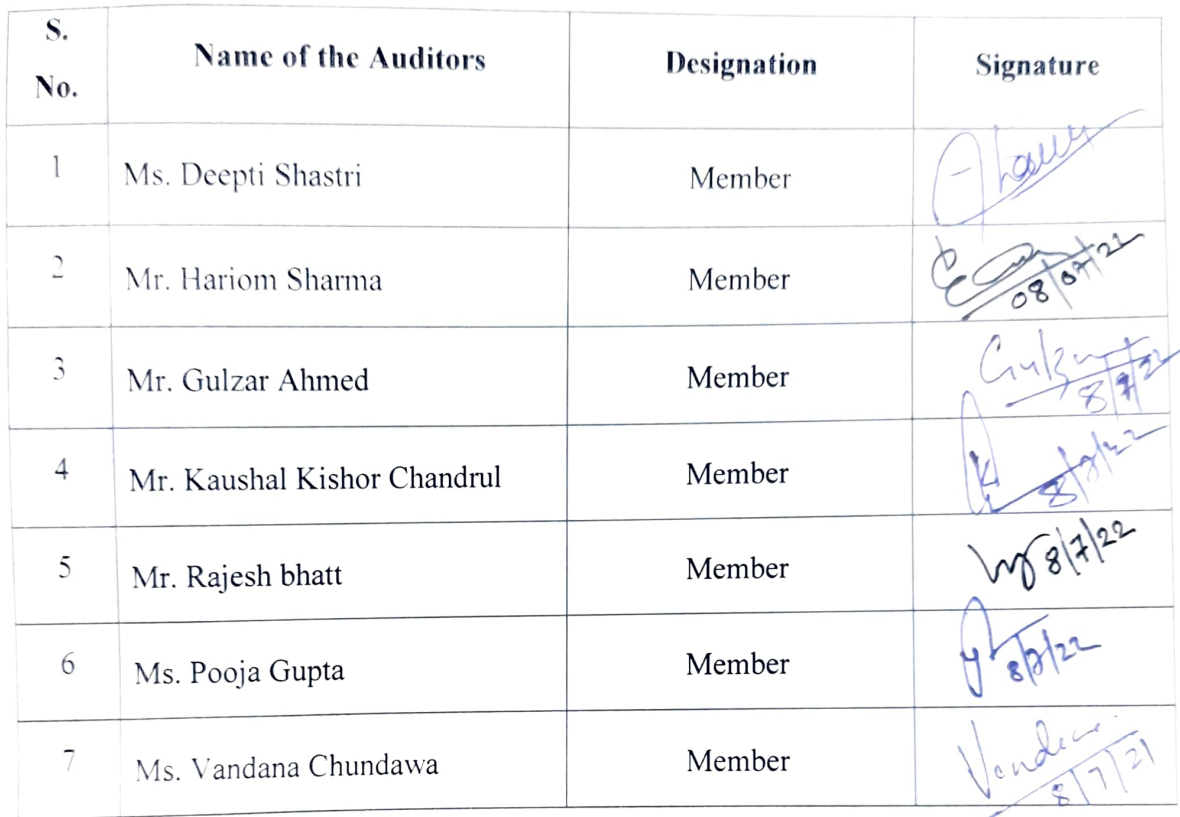 S. No. Name of the Auditors Designation Signature
1 Ms. Deepti Shastri Member
2 Mr. Hariom Sharma Member 08/07/22
3 Mr. Gulzar Ahmed Member Gulzar 8/7/22
4 Mr. Kaushal Kishor Chandrul Member 8/7/22
5 Mr. Rajesh bhatt Member 8/7/22
6 Ms. Pooja Gupta Member 8/7/22
7 Ms. Vandana Chundawa Member Vandana 8/7/21